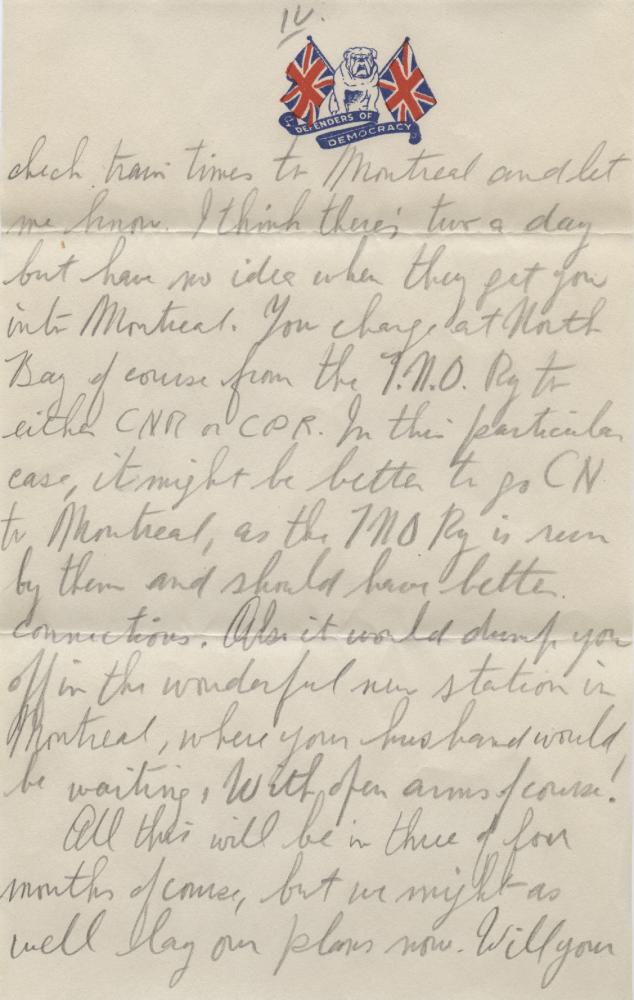 IV.
DEFENDERS OF
DEMOCRACY
check train times to Montreal and let
me know. I think there's two a day
but have no idea when they get you
into Montreal. You change at North
Bay of course from the T.N.O. Ry to
either CNR or CPR. In this particular
case, it might be better to go CN
to Montreal, as the TNO Ry is run
by them and should have better
connections. Also it would dump you
off in the wonderful new station in
Montreal, where your husband would
be waiting, With open arms of course!
All this will be in three of four
months of course, but we might as
well lay our plans now. Will your